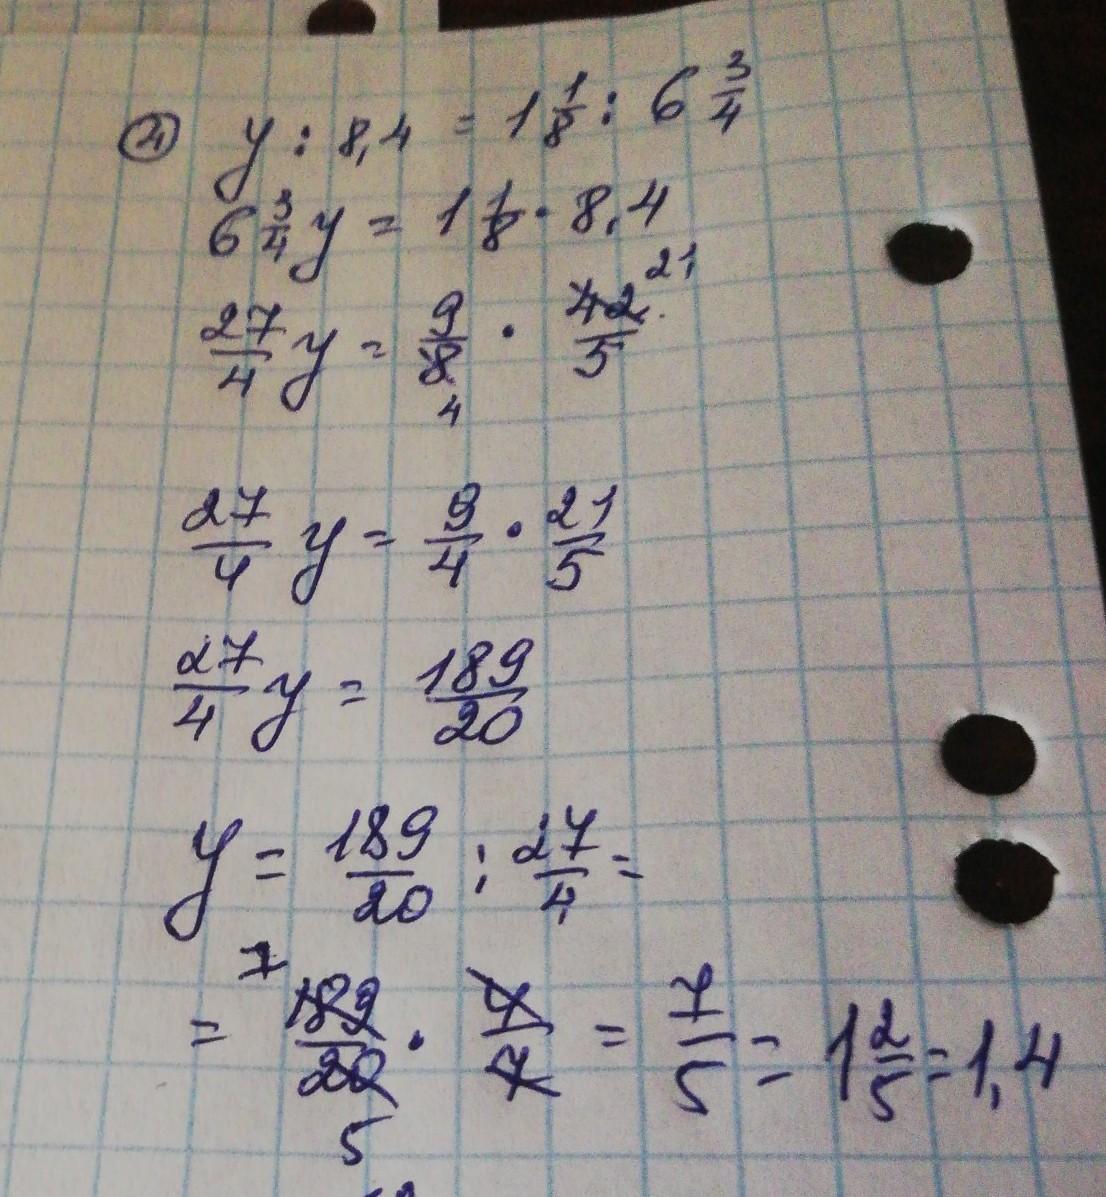 ④ y : 8,4 = 1 1/8 : 6 3/4
6 3/4 y = 1 1/8 · 8,4
27/4 y = 9/8 · 42/5 21
4
27/4 y = 9/4 · 21/5
27/4 y = 189/20
y = 189/20 : 27/4 =
7
= 189/20 · 4/7 = 7/5 = 1 2/5 = 1,4
5